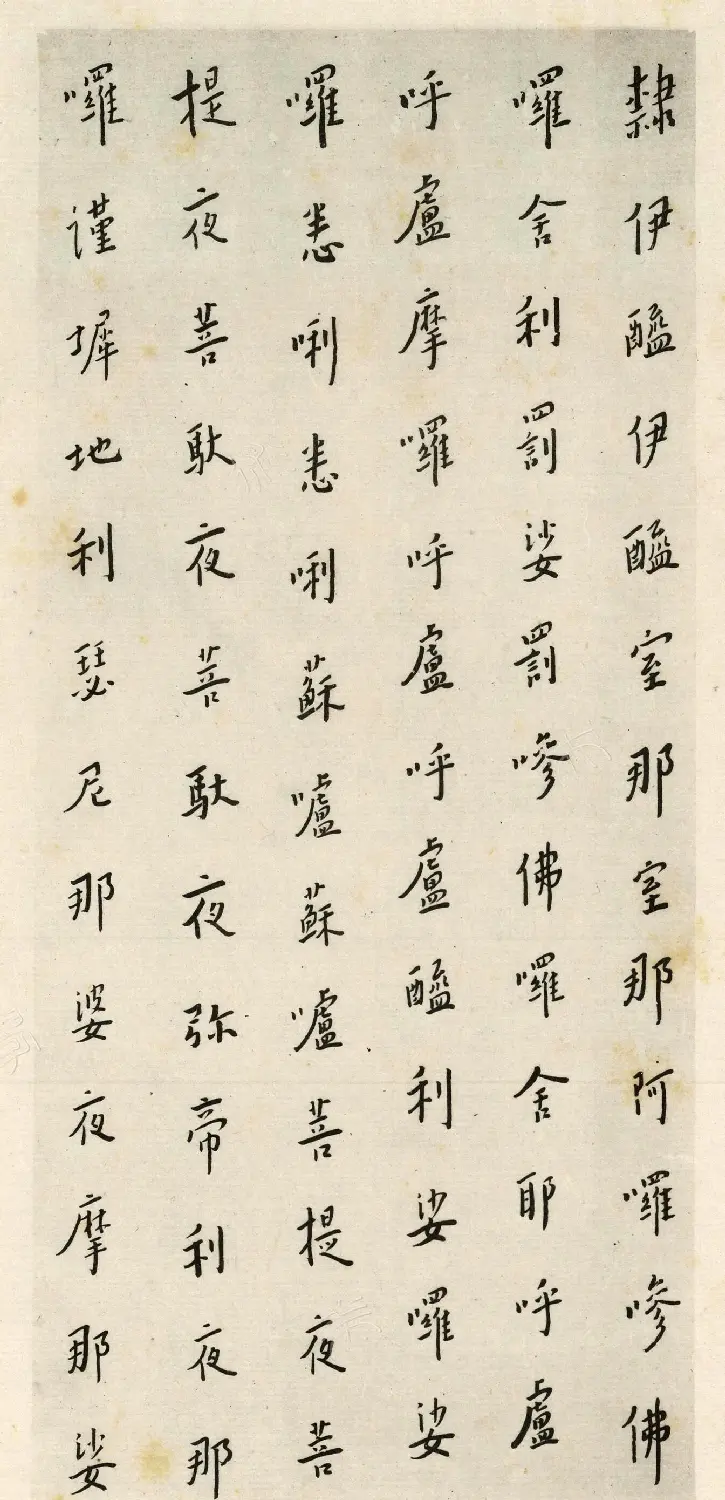 隷伊醯伊醯室那室那阿囉嘇佛
囉舍利罰娑罰嘇佛囉舍耶呼盧
呼盧摩囉呼盧呼盧醯利娑囉娑
囉悉唎悉唎蘇嚧蘇嚧菩提夜菩
提夜菩馱夜菩馱夜弥帝利夜那
囉謹墀地利瑟尼那婆夜摩那娑